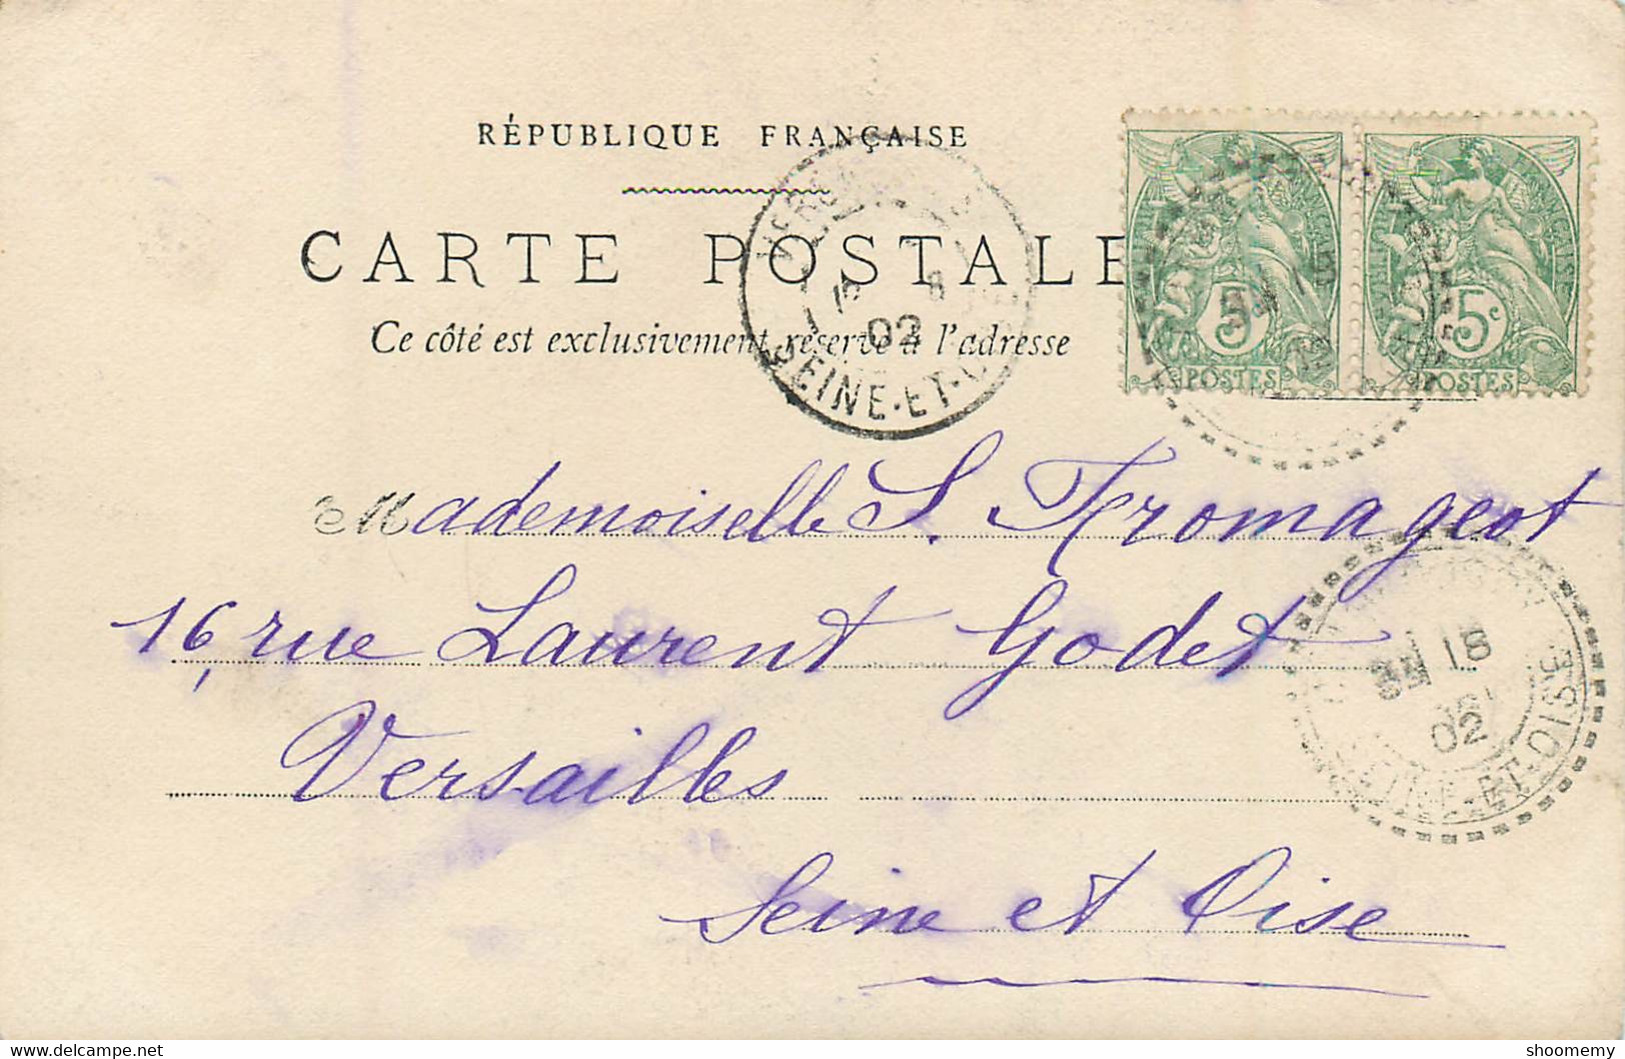 RÉPUBLIQUE FRANÇAISE
CARTE POSTALE
Ce côté est exclusivement réservé à l'adresse
02
SEINE-ET-O
5
POSTES
5c
POSTES
Mademoiselle S. Fromageot
16, rue Laurent Godet
Versailles
Seine et Oise
18
02
SEINE-ET-OISE
delcampe.net
shoomemy